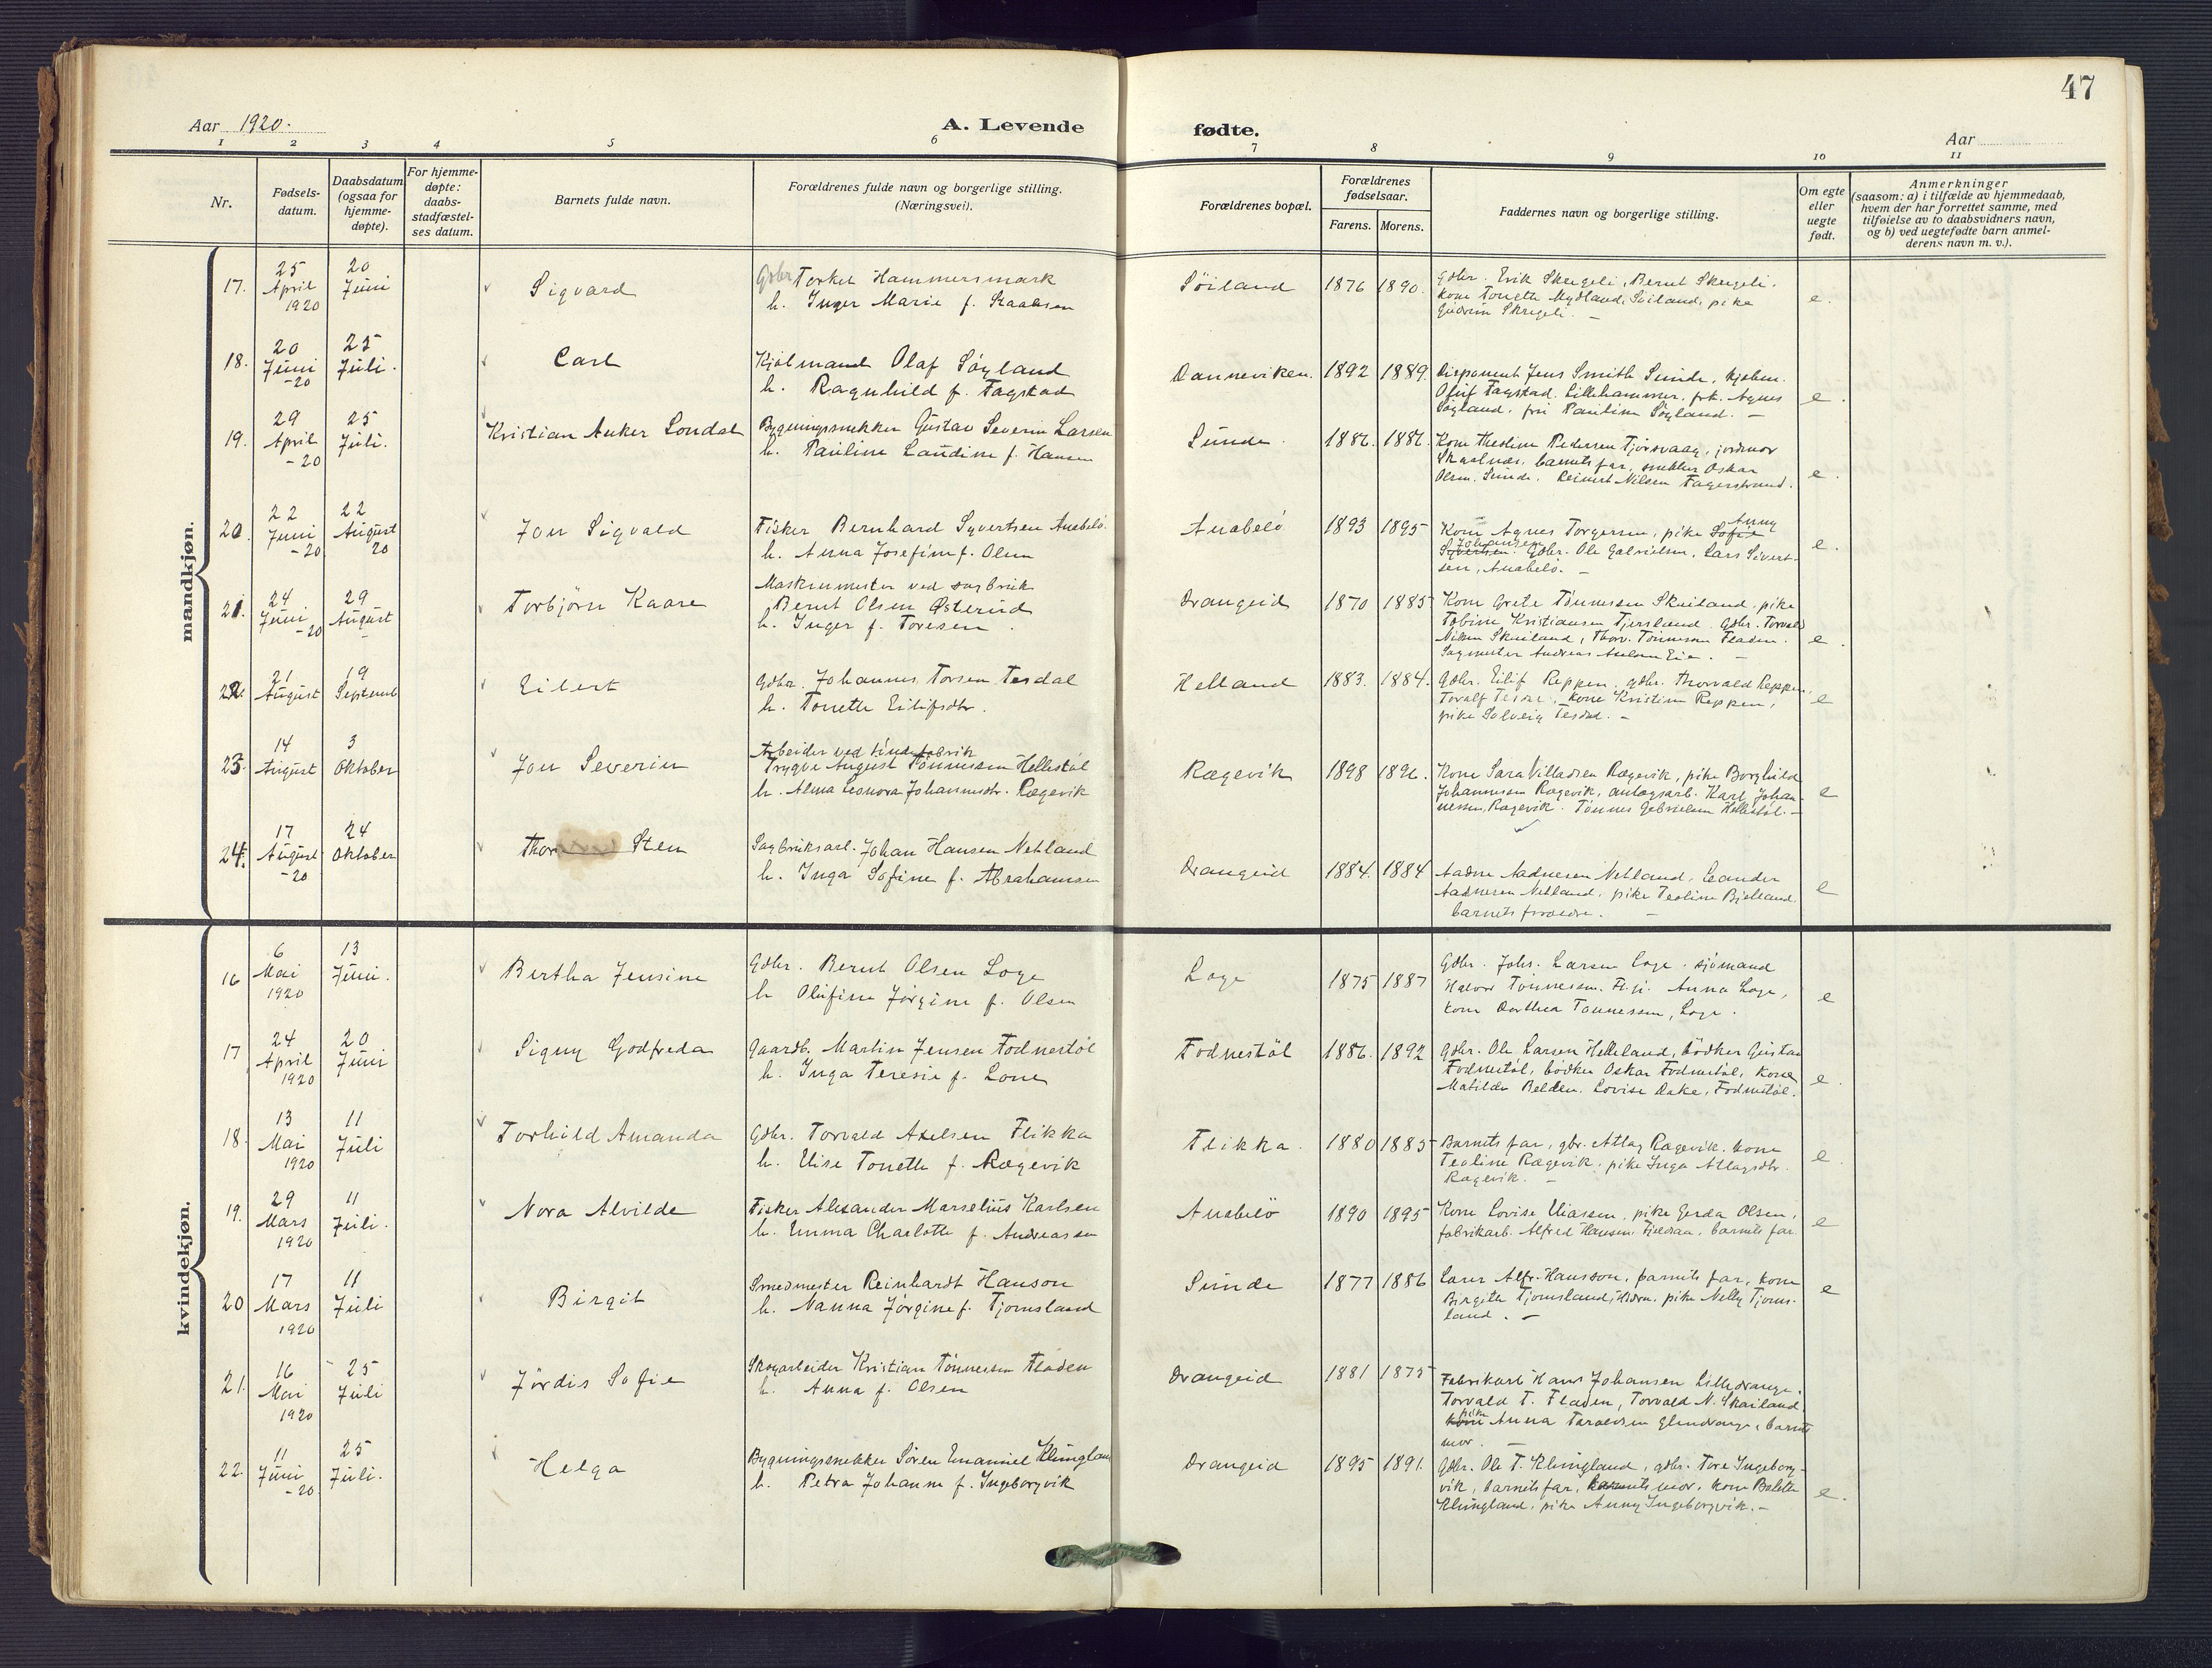 47
Aar 1920.
A. Levende
fødte.
Aar
1 2 3 4 5 6 7 8 9 10 11
Nr.
Fødsels-
datum.
Daabsdatum
(ogsaa for
hjemme-
døpte).
For hjemme-
døpte:
daabs-
stadfæstel-
ses datum.
Barnets fulde navn.
Forældrenes fulde navn og borgerlige stilling.
(Næringsvei).
Forældrenes bopæl.
Forældrenes
fødselsaar.
Farens. Morens.
Faddernes navn og borgerlige stilling.
Om egte
eller
uegte
født.
Anmerkninger
(saasom: a) i tilfælde av hjemmedaab,
hvem der har forrettet samme, med
tilføielse av to daabsvidners navn,
og b) ved uegtefødte barn anmel-
derens navn m. v.).
mandkjøn.
17. 25 April 1920 20 Juni Sigvard
Gdbr Torkel Hammersmark
h. Inger Marie f. Staalesen
Söiland 1876 1890.
Gdbr. Erik Skregeli, Bernt Skregeli.
kone Tonette Mydland, Söiland, pike
Gudrun Skregeli. –
e.
18. 20 Juni -20 25 Juli. Carl
Kjölmand Olaf Söyland
h. Ragnhild f. Fagstad
Danneviken. 1892 1889.
Disponent Jens Smith Sunde, kjøbm.
Oluf Fagstad, Lillehammer, frk. Agnes
Söyland, fru Pauline Söyland. –
e.
19. 29 April -20 25 Juli. Kristian Anker Londal
Bygningssnekker Gustav Severin Larsen
h. Pauline Laudine f. Hansen
Sunde. 1886. 1886.
Kone Thesline Pedersen Tjörsvaag, jordmor
Skaalnes, barnets far, snekker Oskar
Olsen, Sunde, Reinert Nilsen Fagerstrand.
e.
20. 22 Juni -20 22 August 20 Jon Sigvald
Fisker Bernhard Syvertsen Anabelö.
h. Anna Josefine f. Olsen
Anabelö 1893 1895
Anny
Kone Agnes Torgersen, pike Sofie
Johansen
Syvertsen. Gdbr. Ole Gabrielsen, Lars Sivert-
sen, Anabelö. –
e.
21. 24 Juni -20 29 August Torbjörn Kaare
Maskinmester ved sagbruk
Bernt Olsen Østerud
h. Inger f. Toresen.
Drangeid 1870 1885
Kone Grete Tönnessen Skailand, pike
Tobine Kristiansen Tjersland. Gdbr. Torvald
Nilsen Skailand, Thorv. Tönnessen Fladen.
Sagmester Andreas Aulsen Eie. –
e.
22. 21 August 19 Septemb Eilert
Gdbr. Johannes Torsen Tesdal
h. Tonette Eilifsdtr.
Helland 1883. 1884.
Gdbr. Eilif Reppen, gdbr. Thorvald Reppen,
Toralf Tesdal, kone Kristine Reppen,
pike Solveig Tesdal. –
e
23. 14 August 3 Oktober Jon Severin
Arbeider ved töndefabrik
Trygve August Tönnessen Hellestöl
h. Alma Leonora Johannesdtr. Rægevik
Rægevik 1898 1896.
Kone Sara Villadsen Rægevik, pike Borghild
Johannessen Rægevik, anlægsarb. Karl Johan-
nessen, Rægevik. Tönnes Gabrielsen Hellestöl. –
e
24. 17 August -20 24 Oktober Thor Sten
Sagbruksarb. Johan Hansen Netland
h. Inga Sofine f. Abrahamsen
Drangeid 1884. 1884
Aadne Aadnesen Netland, Leander
Aadnesen Netland, pike Teoline Bjelland.
barnets foreldre. –
e
kvindekjøn.
16 6 Mai 1920 13 Juni. Bertha Jensine
Gdbr. Bernt Olsen Loge
h Olufine Jörgine f. Olsen
Loge 1875 1887
Gdbr. Johs. Larsen Loge. sjömand
Halvor Tönnessen. Anna Loge,
kone Dorthea Tönnessen, Loge.
e
17 24 April 1920 20 Juni Signy Godfreda
Gaardb. Martin Jensen Fodnestöl
h. Inga Teresie f. Lone
Fodnestöl 1886. 1892
Gdbr. Ole Larsen Helleland, bödker Gustav
Fodnestöl, bödker Oskar Fodnestöl, kone
Matilde Belden. Lovise Dake, Fodnestöl.
e.
18. 13 Mai 1920 11 Juli Torhild Amanda
Gdbr. Torvald Axelsen Flikka
h. Elise Tonette f. Rægevik
Flikka. 1880 1885
Barnets far, gbr. Atlag Rægevik, kone
Teoline Rægevik, pike Inga Atlagsdtr.
Rægevik. –
e.
19. 29 Mars 1920 11 Juli. Nora Alvilde
Fisker Alexander Marselius Karlsen
h. Emma Charlotte f. Andreassen
Anabelö 1890 1895
Kone Lovise Eliassen, pike Gerda Olsen,
fabrikarb. Alfred Hansen, Fjeldsaa, barnets far.
e
20 17 Mars 1920 11 Juli Birgit
Smedmester Reinhardt Hanson
h. Nanna Jörgine f. Tjomsland
Sunde 1877 1886
Lærer Alfr. Hansson, barnets far, kone
Birgitte Tjomsland, Hidra, pike Nelly Tjoms-
land. –
e
21. 16 Mai 1920 25 Juli Jördis Sofie
Skogarbeider Kristian Tönnessen Fladen
h. Anna f. Olsen
Drangeid 1881 1875
Fabrikarb Hans Johansen Lilledrange.
Torvald T. Fladen, Torvald N. Skailand.
pike
kone Anna Taraldsen Glendrange, barnets
mor. –
22. 11 Juni -20 25 Juli. Helga
Bygningssnekker Sören Emanuel Klungland
h. Petra Johanne f. Ingeborgvik
Drangeid 1895 1891.
Gdbr. Ole T. Klungland, gdbr. Tore Ingeborg-
vik, barnets far, barnets mor, kone Bolette
Klungland, pike Anny Ingeborgvik. –
e.